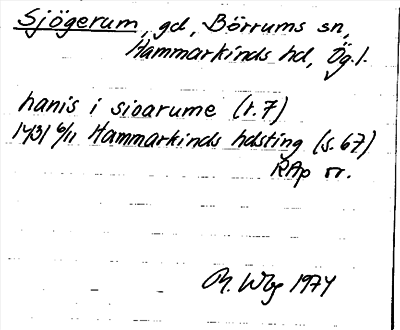 Sjögerum, gd, Börrums sn,
Hammarkinds hd, Ög.l.
hanis i sioarume (r.7)
1431 6/11 Hammarkinds hdsting (s.67)
RAp or.
M. Wbg 1974